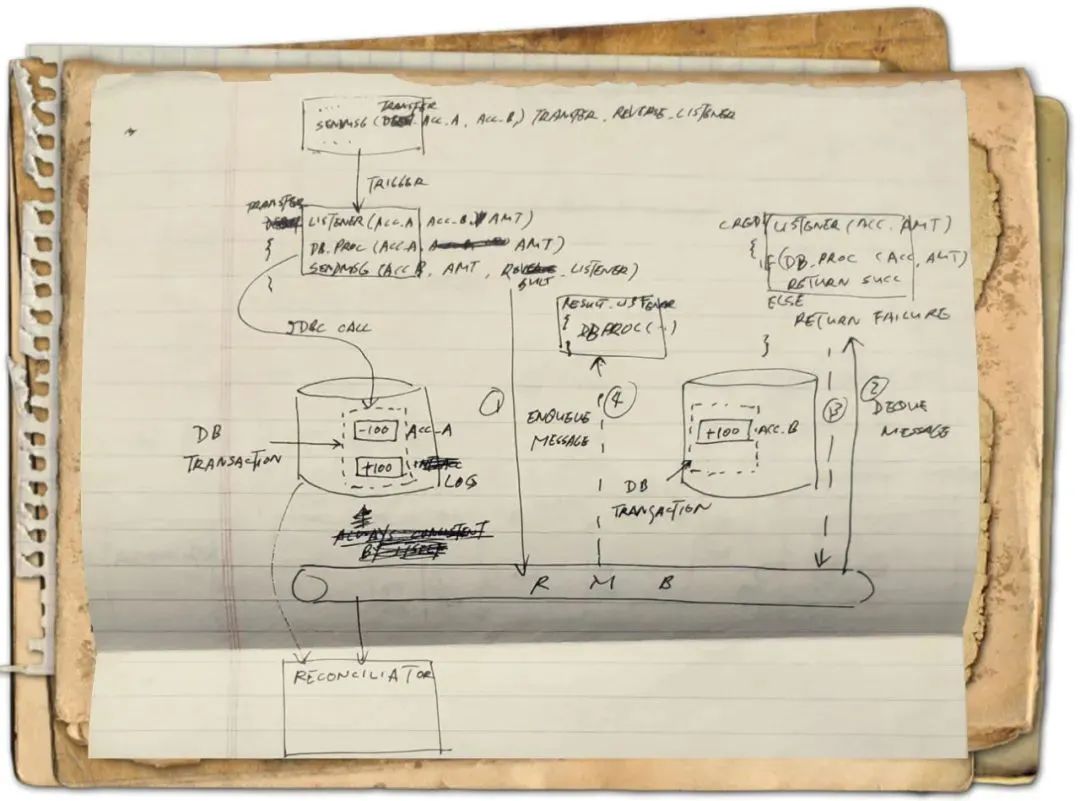 TRANSFER
SENDMSG (ACC.A, ACC.B,) TRANSFER, REVERSE-LISTENER
TRIGGER
TRANSFER
LISTENER (ACC.A, ACC.B, AMT)
{
DB.PROC (ACC.A, AMT)
SENDMSG (ACC B, AMT, LISTENER)
}
CREDIT LISTENER (ACC, AMT)
{
IF (DB.PROC (ACC, AMT)
RETURN SUCC
ELSE
RETURN FAILURE
}
RESULT-LISTENER
{
DB PROC (--)
}
JDBC CALL
1
ENQUEUE
MESSAGE
4
3
2
DEQUE
MESSAGE
DB
TRANSACTION
-100
ACC-A
+100
LOG
ALWAYS CONSISTENT
BY ITSELF
+100
ACC-B
DB
TRANSACTION
R M B
RECONCILIATOR